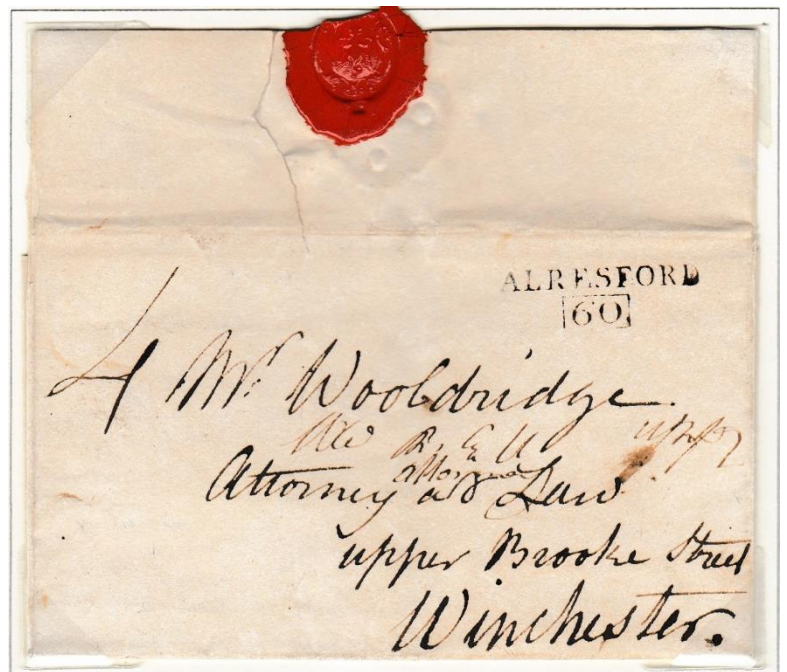 ALRESFORD
60
4 Mr Wooldridge.
Attorney at Law
upper Brooke Street
Winchester.